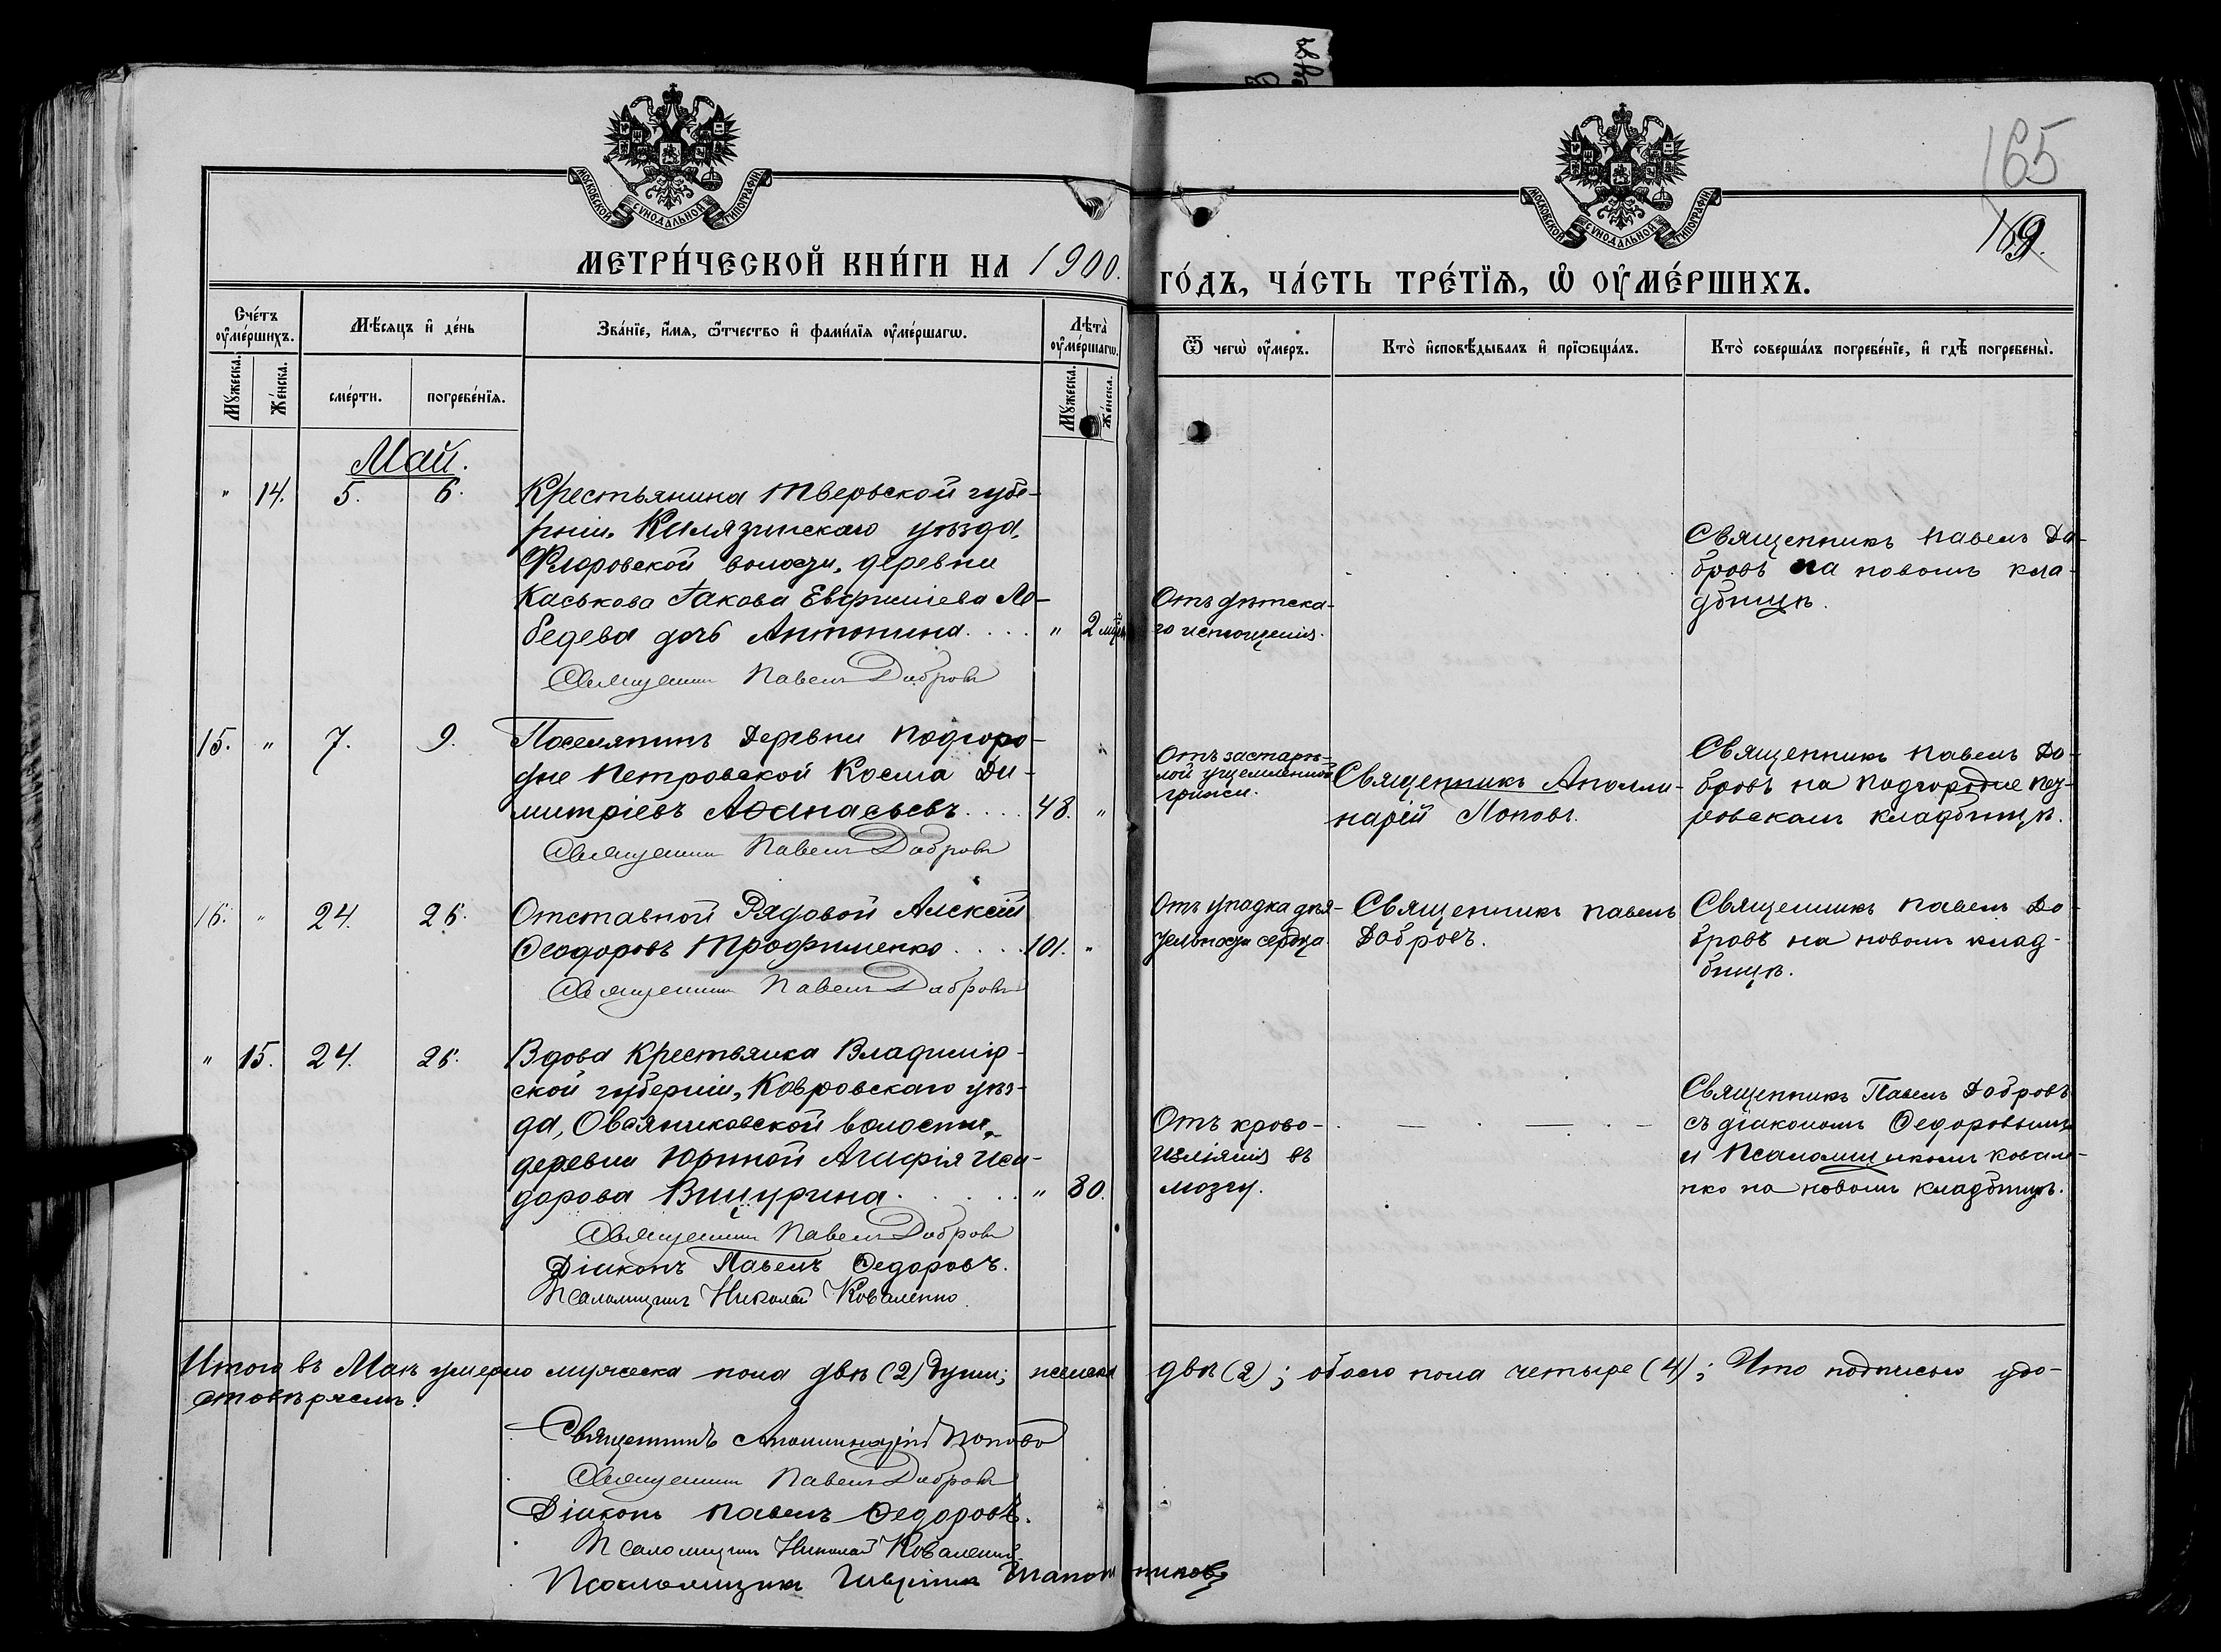 МОСКОВСКОЙ СУНОДАЛЬНОЙ ТИПОГРАФІИ
МОСКОВСКОЙ СУНОДАЛЬНОЙ ТИПОГРАФІИ
165
169.
МЕТРИ́ЧЕСКОЙ КНИ́ГИ НА 1900.
ГО́ДЪ, ЧА́СТЬ ТРЕ́ТЇѦ, Ѡ҆ ОУ҆МЕ́РШИХЪ.
Сче́тъ оу҆ме́ршихъ.
Мꙋ́жеска.
Же́нска.
Мѣ́сѧцъ и҆ де́нь
сме́рти.
погребе́нїѧ.
Зва́нїе, и҆́мѧ, ѻ҆́тчество и҆ фами́лїѧ оу҆ме́ршагѡ.
Лѣ́та̀ оу҆ме́ршагѡ.
Мꙋ́жеска.
Же́нска.
Ѿ чегѡ̀ оу҆́меръ.
Кто̀ и҆сповѣ́дывалъ и҆ прїѡбща́лъ.
Кто̀ соверша́лъ погребе́нїе, и҆ гдѣ̀ погребены̀.
Май.
" 14. 5. 6. Крестьянина Тверьской губе-
рніи, Калязинскаго уѣзда,
Фларовской волости, деревни
Каськова Іакова Евфиміева Ле-
бедева дочь Антонина.... " 2 мѣс.
Священникъ Павелъ Добровъ
Отъ дѣтска-
го истощенія.
Священникъ Павелъ До-
бровъ на новомъ кла-
дбищѣ.
15. " 7. 9. Поселянинъ Деревни Подгоро-
дне Петровской Косма Ди-
митріевъ Аѳанасьевъ.... 48. "
Священникъ Павелъ Добровъ
Отъ застарѣ-
лой ущемленной
грыжи.
Священникъ Аполли-
нарій Поповъ.
Священникъ Павелъ До-
бровъ на Подгородне Пет-
ровскомъ кладбищѣ.
16. " 24. 26. Отставной Рядовой Алексій
Ѳеодоровъ Трофименко.... 101. "
Священникъ Павелъ Добровъ
Отъ упадка дѣя-
тельности сердца.
Священникъ Павелъ
Добровъ.
Священникъ Павелъ До-
бровъ на новомъ клад-
бищѣ.
" 15. 24. 26. Вдова Крестьянка Владимір-
ской губерніи, Ковровскаго уѣз-
да, Овсяниковской волости,
деревни Юриной Агафія Иси-
дорова Вищурина...... " 80.
Священникъ Павелъ Добровъ
Діаконъ Павелъ Ѳедоровъ.
Псаломщикъ Николай Коваленко.
Отъ крово-
изліянія въ
мозгу.
Священникъ Павелъ Добровъ
съ діакономъ Ѳедоровымъ
и Псаломщикомъ Ковале-
нко на новомъ кладбищѣ.
Итого въ Маѣ умерло мужеска пола двѣ (2) души; женска двѣ (2); обоего пола четыре (4); Что подписью удо-
стовѣряемъ.
Священникъ Аполлинарій Поповъ
Священникъ Павелъ Добровъ
Діаконъ Павелъ Ѳедоровъ.
Псаломщикъ Николай Коваленко.
Псаломщикъ